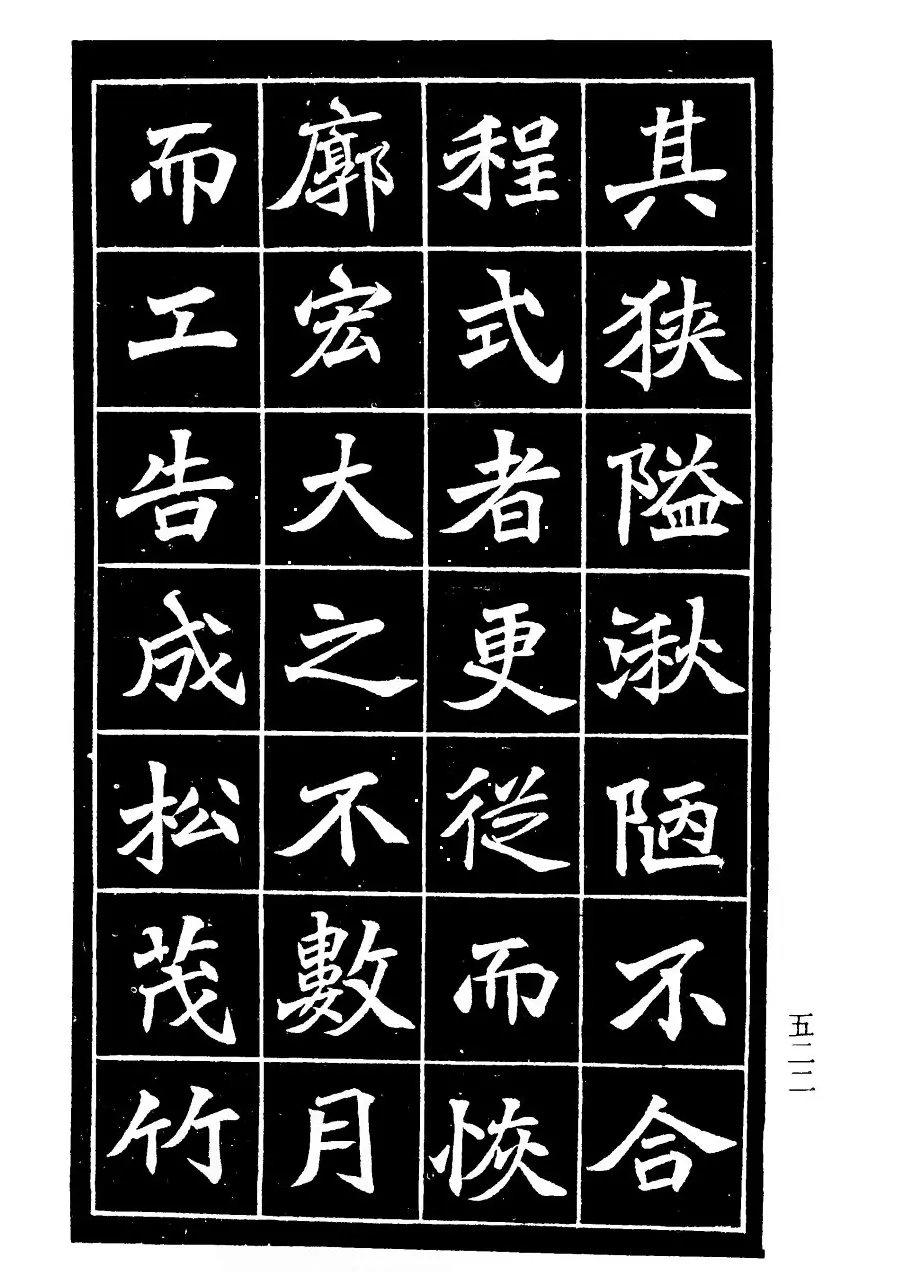 其狹隘湫陋不合
程式者更從而恢
廓宏大之不數月
而工告成松茂竹
五二二